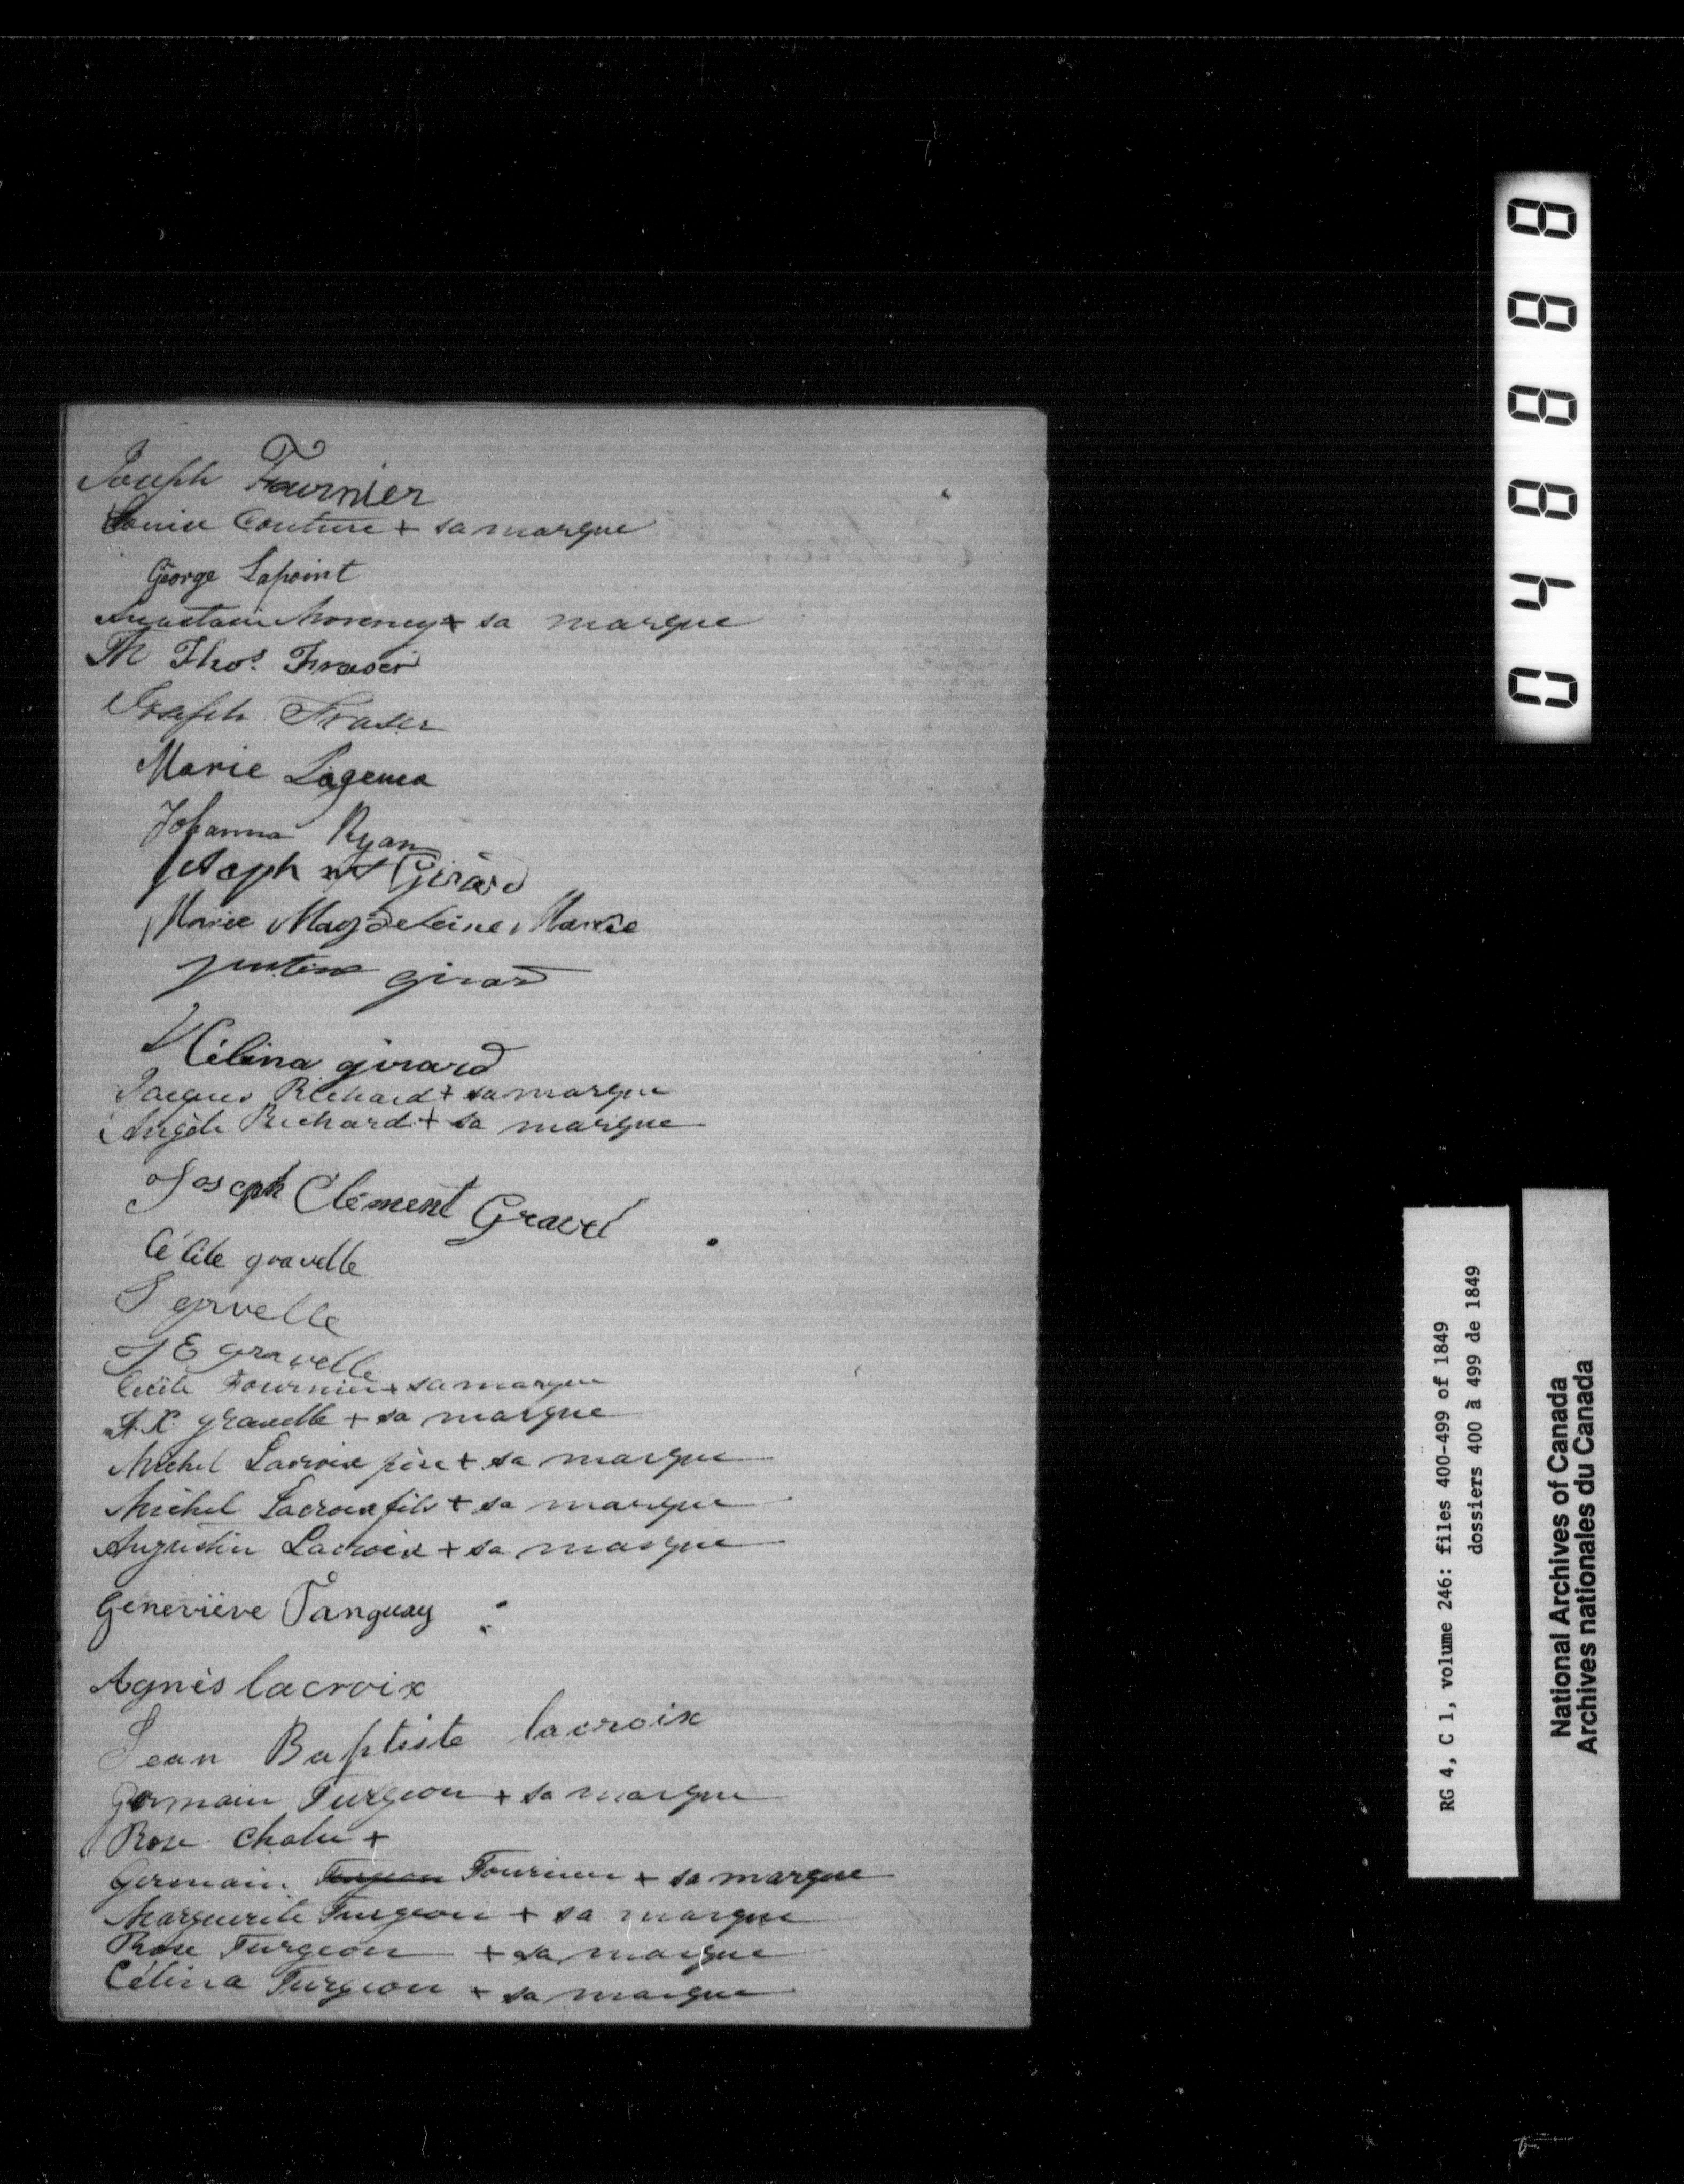 Joseph Fournier
Louise Couture + sa marque
George Lapoint
Anastasie Moroney + sa marque
Th Thos. Fraser
Joseph Fraser
Marie Lagema
Johanna Ryan
Joseph Girard
Marie Magdeleine Marie
girard
Célina girard
Jacques Richard + sa marque
Angèle Richard + sa marque
Joseph Clément Gravel
gravelle
J grvelle
J E gravelle
Cécile Fournier + sa marque
F. X. gravelle + sa marque
Michel Lacroix père + sa marque
Michel Lacroix fils + sa marque
Augustin Lacroix + sa marque
Geneviève Tanguay
Agnès lacroix
Jean Baptiste lacroix
Germain Turgeon + sa marque
Rose +
Germain Turgeon Fournier + sa marque
Marguerite Turgeon + sa marque
Rose Turgeon + sa marque
Célina Turgeon + sa marque
048888
RG 4, C 1, volume 246: files 400-499 of 1849
dossiers 400 à 499 de 1849
National Archives of Canada
Archives nationales du Canada